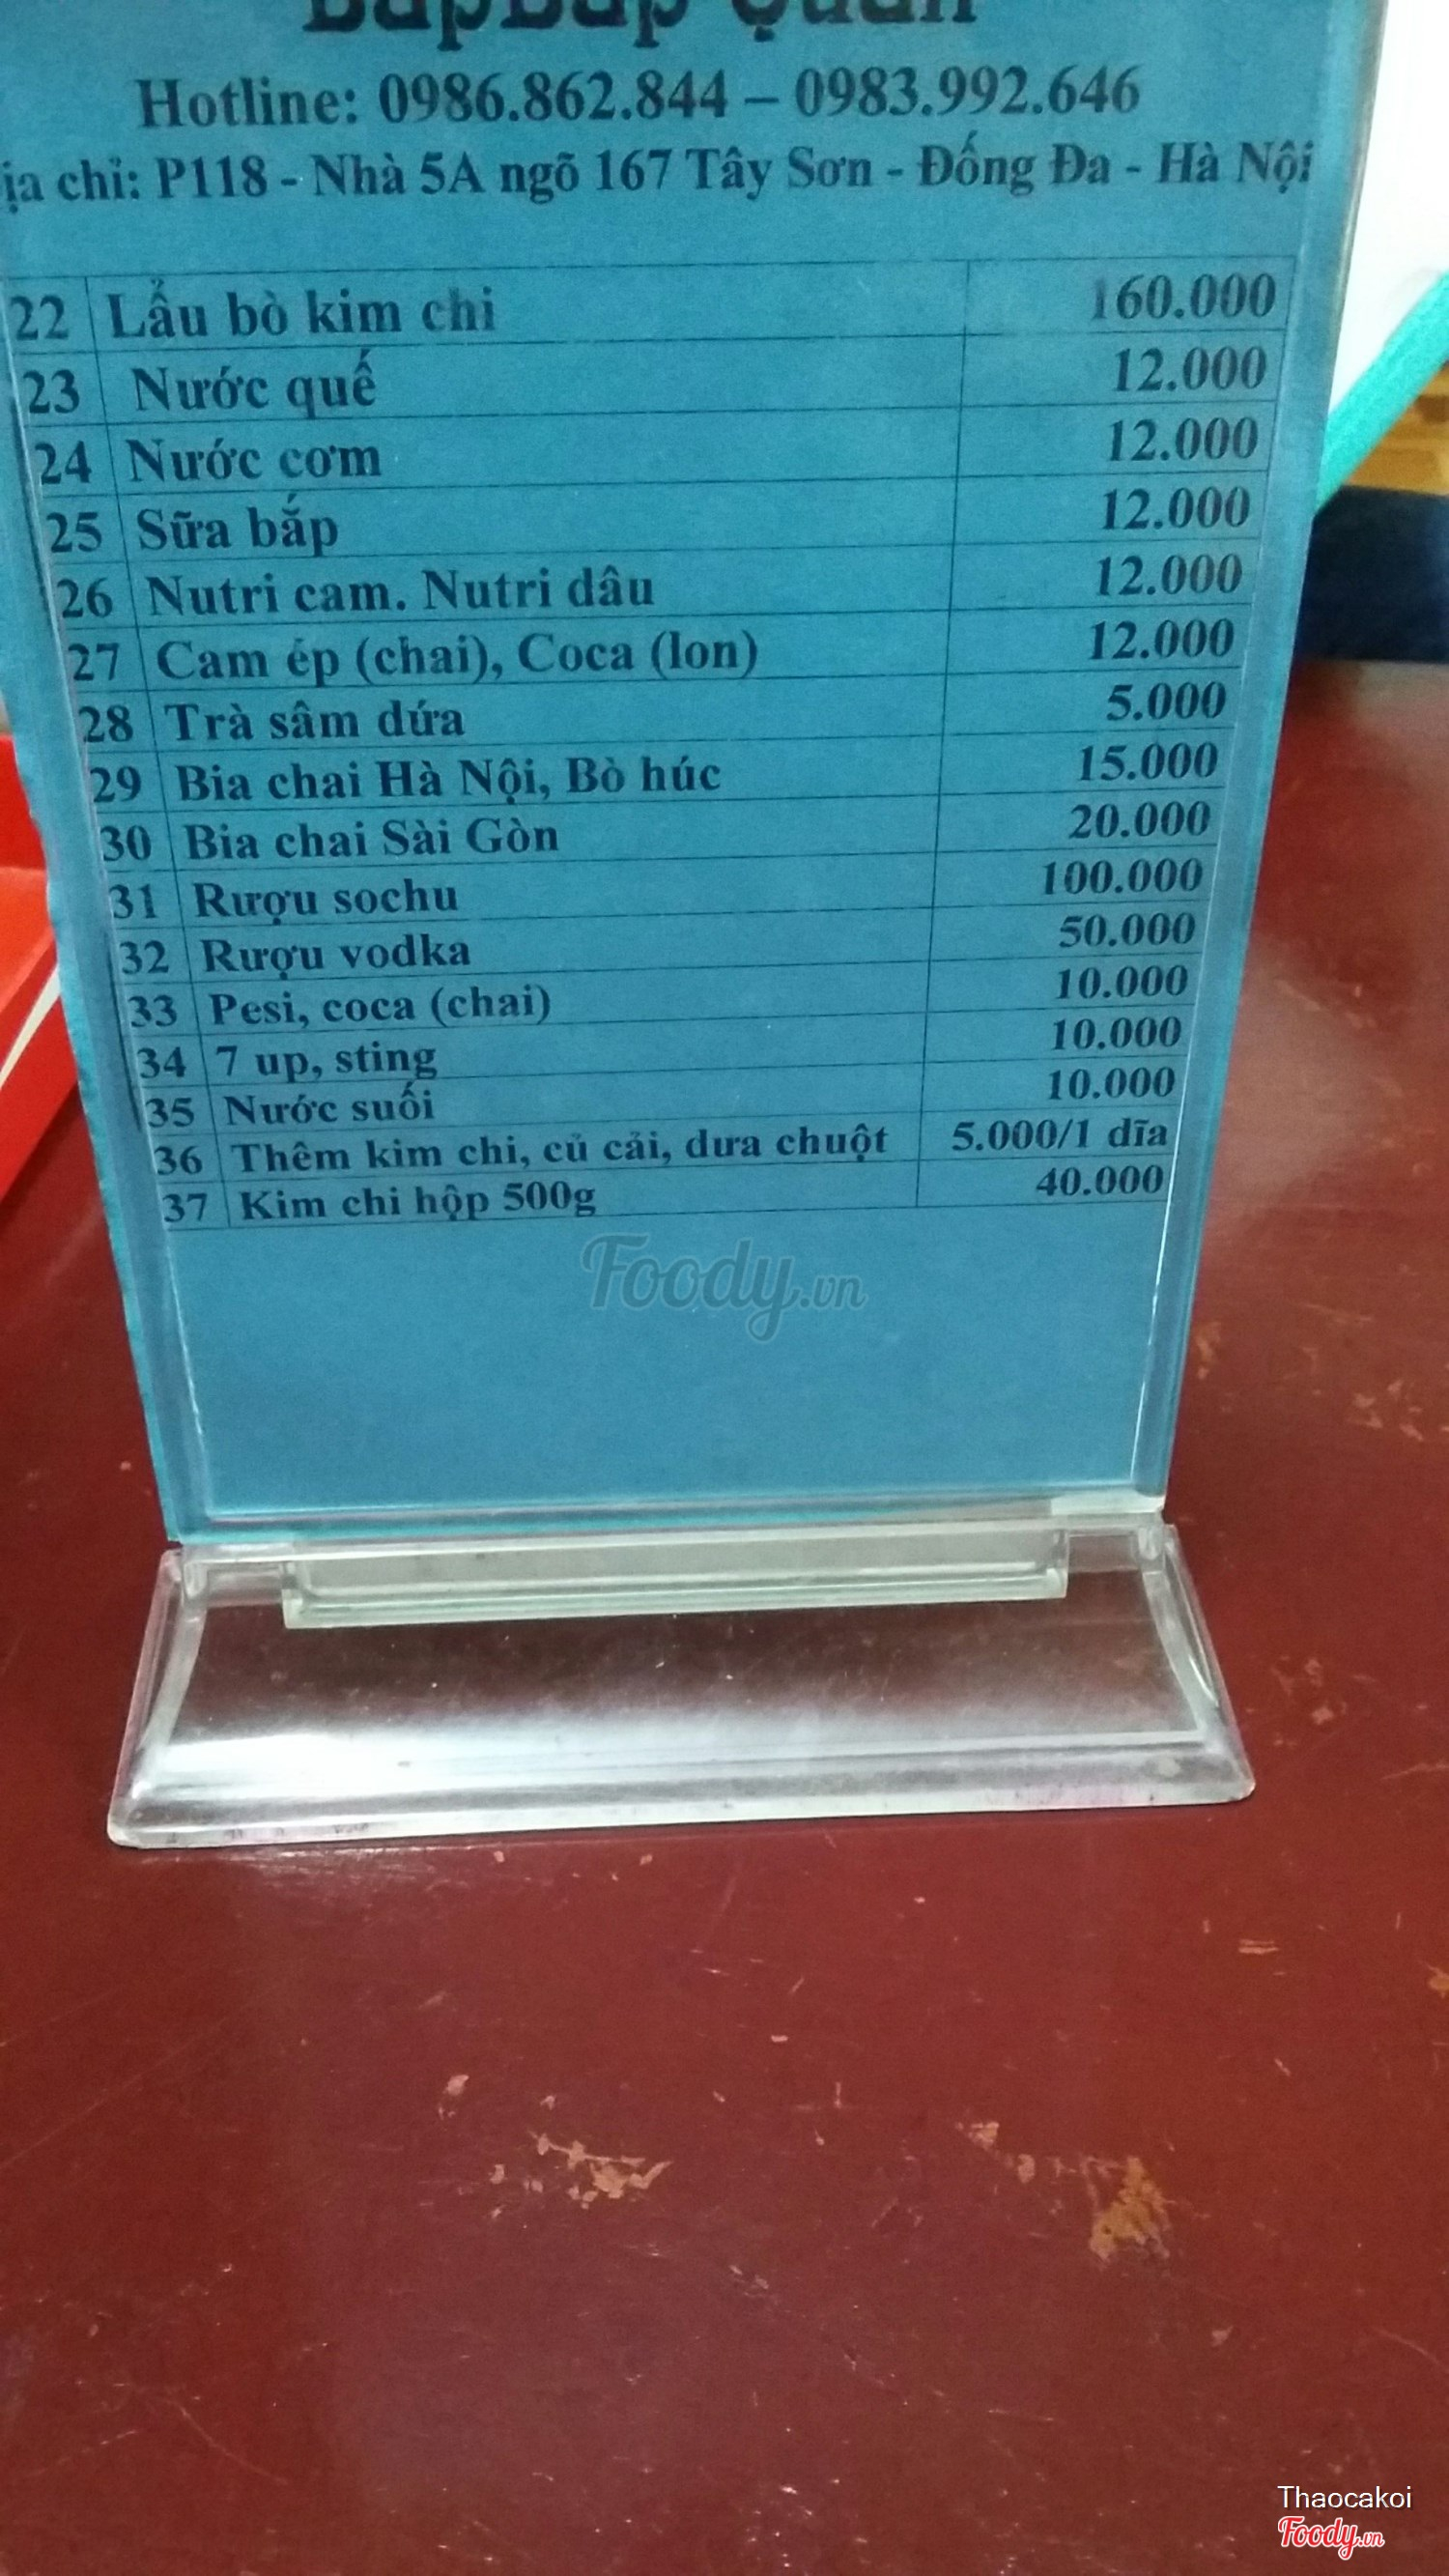 Hotline: 0986.862.844 – 0983.992.646
ịa chỉ: P118 - Nhà 5A ngõ 167 Tây Sơn - Đống Đa - Hà Nội
22 Lẩu bò kim chi 160.000
23 Nước quế 12.000
24 Nước cơm 12.000
25 Sữa bắp 12.000
26 Nutri cam. Nutri dâu 12.000
27 Cam ép (chai), Coca (lon) 12.000
28 Trà sâm dứa 5.000
29 Bia chai Hà Nội, Bò húc 15.000
30 Bia chai Sài Gòn 20.000
31 Rượu sochu 100.000
32 Rượu vodka 50.000
33 Pesi, coca (chai) 10.000
34 7 up, sting 10.000
35 Nước suối 10.000
36 Thêm kim chi, củ cải, dưa chuột 5.000/1 dĩa
37 Kim chi hộp 500g 40.000
Foody.vn
Thaocakoi
Foody.vn